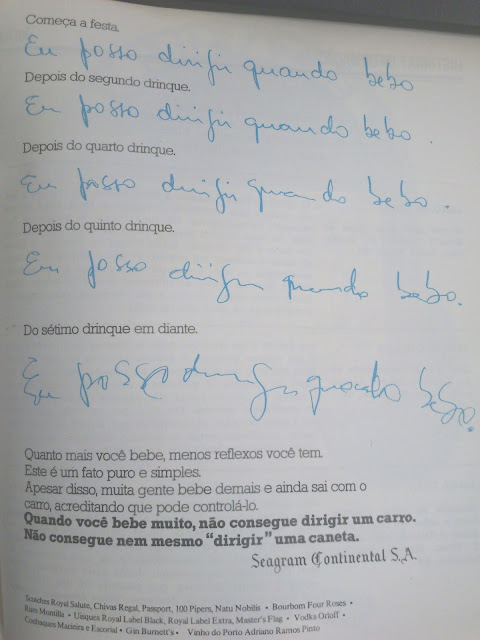 Começa a festa.
Eu posso dirigir quando bebo
Depois do segundo drinque.
Eu posso dirigir quando bebo.
Depois do quarto drinque.
Eu posso dirigir quando bebo.
Depois do quinto drinque.
Eu posso dirigir quando bebo.
Do sétimo drinque em diante.
Eu posso dirigir quando bebo.
Quanto mais você bebe, menos reflexos você tem.
Este é um fato puro e simples.
Apesar disso, muita gente bebe demais e ainda sai com o
carro, acreditando que pode controlá-lo.
Quando você bebe muito, não consegue dirigir um carro.
Não consegue nem mesmo “dirigir” uma caneta.
Seagram Continental S.A.
Scotches Royal Salute, Chivas Regal, Passport, 100 Pipers, Natu Nobilis • Bourbom Four Roses •
Rum Montilla • Uisques Royal Label Black, Royal Label Extra, Master's Flag • Vodka Orloff •
Conhaques Macieira e Escorial • Gin Burnett's • Vinho do Porto Adriano Ramos Pinto